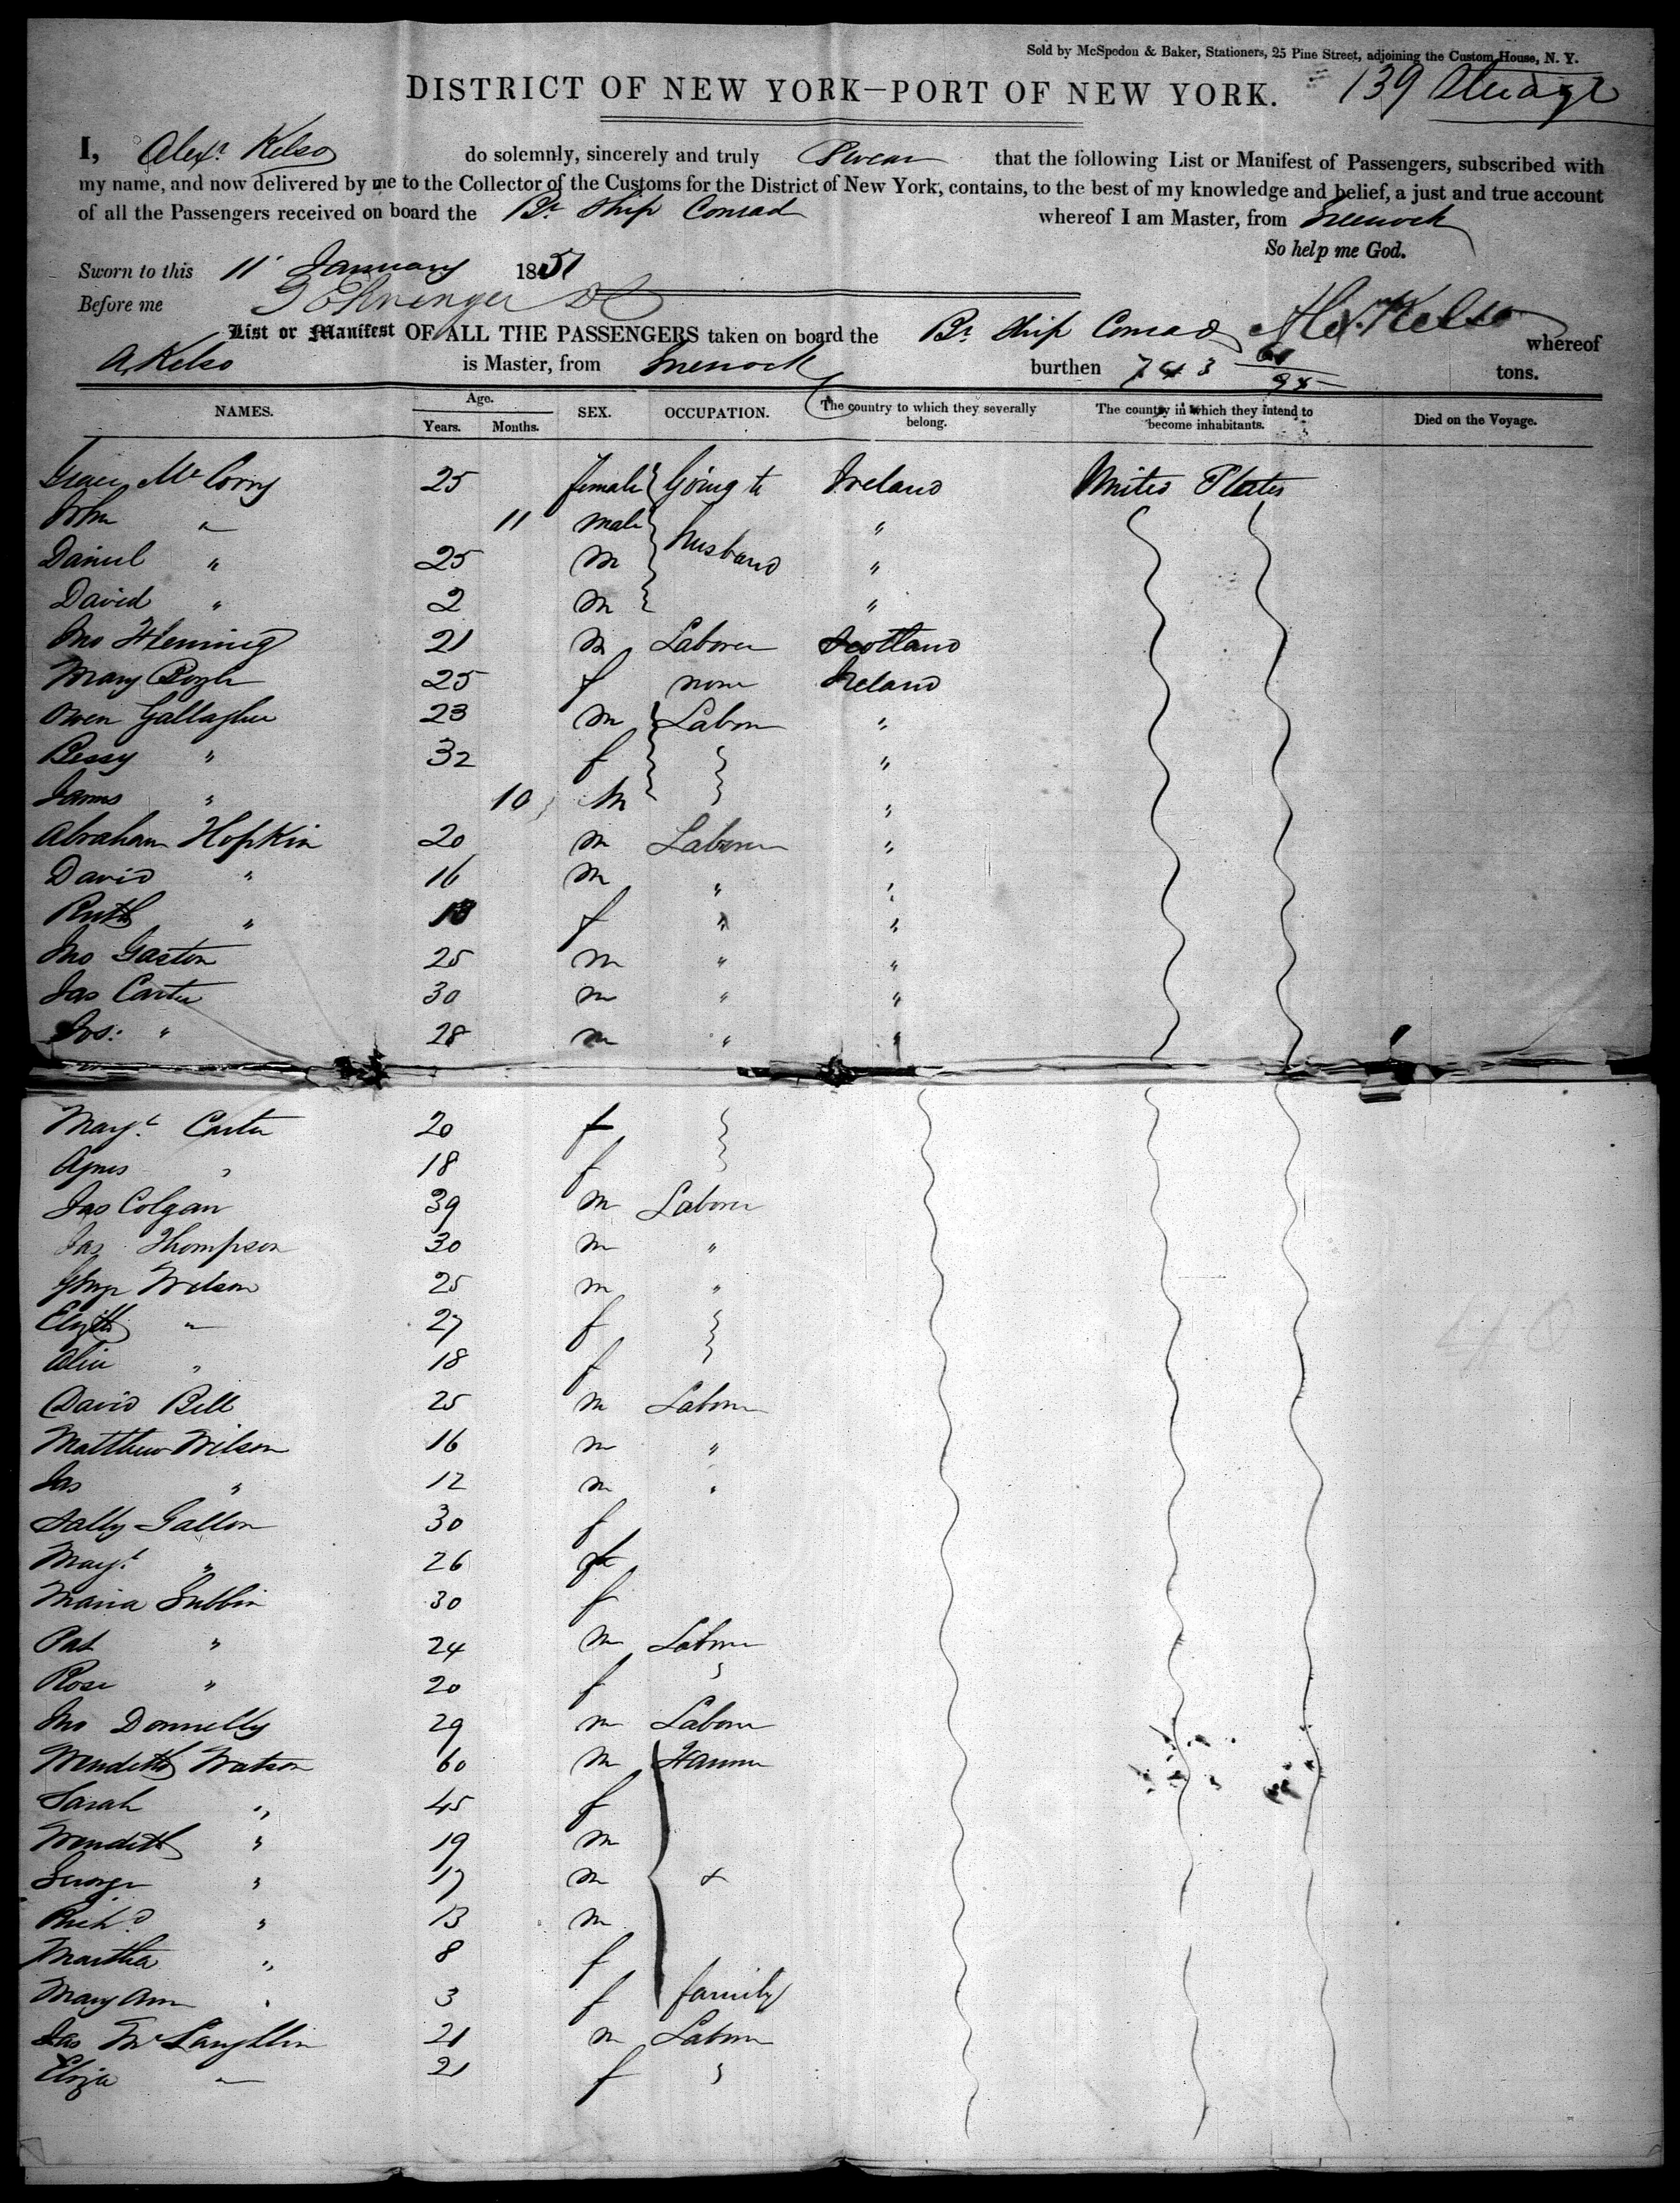 Sold by McSpedon & Baker, Stationers, 25 Pine Street, adjoining the Custom House, N. Y.
DISTRICT OF NEW YORK—PORT OF NEW YORK. 139 Steerage
I, Alexr Kelso do solemnly, sincerely and truly Swear that the following List or Manifest of Passengers, subscribed with
my name, and now delivered by me to the Collector of the Customs for the District of New York, contains, to the best of my knowledge and belief, a just and true account
of all the Passengers received on board the Br Ship Conrad whereof I am Master, from Greenock
So help me God.
Sworn to this 11 January 1851
Before me
Alex. Kelso
List or Manifest OF ALL THE PASSENGERS taken on board the Br Ship Conrad whereof
A Kelso is Master, from Greenock burthen 743 tons.
NAMES. Age. Years. Months. SEX. OCCUPATION. The country to which they severally belong. The country in which they intend to become inhabitants. Died on the Voyage.
Grace Mc 25 female Going to Ireland United States
John " 11 male husband "
Daniel " 25 m "
David " 2 m "
Jno Fleming 21 m Laborer Scotland
Mary Boyle 25 f none Ireland
Owen Gallagher 23 m Laborer "
Bessy " 32 f "
James " 10 m "
Abraham Hopkin 20 m Laborer "
David " 16 m " "
Ruth " 18 f " "
Jno Gaston 25 m " "
Jas Carter 30 m " "
Jos: " 28 m " "
Margt Carter 20 f
Agnes " 18 f
Jas Colgan 39 m Laborer
Jas Thompson 30 m "
George Wilson 25 m "
Elizth " 27 f
Alice " 18 f
David Bell 25 m Laborer
Matthew Wilson 16 m "
Jas " 12 m "
Sally Gallon 30 f
Margt " 26 f
Maria 30 f
Pat " 24 m Laborer
Rose " 20 f "
Jno Donnelly 29 m Laborer
Watson 60 m Farmer
Sarah " 45 f
" 19 m
George " 17 m &
Richd " 13 m
Martha " 8 f
Mary Ann " 3 f family
Jas McLaughlin 21 m Laborer
Eliza " 21 f "